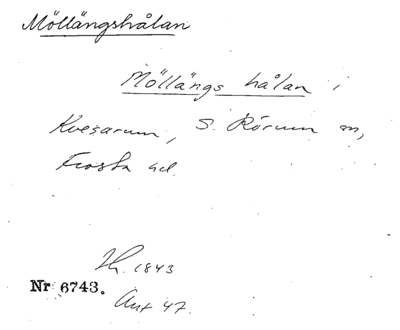 Möllängshålan
Möllängs hålan i
Kvesarum, S. Rörum sn,
Frosta hd.
Th. 1843
Nr 6743. Ant 47.